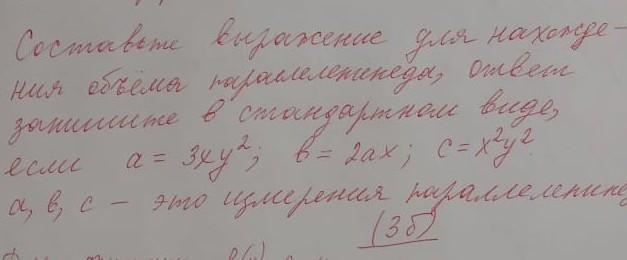 Составьте выражение для нахожде-
ния объёма параллелепипеда, ответ
запишите в стандартном виде,
если a = 3xy²; b = 2ax; c = x²y².
a, b, c – это измерения параллелепипе
(3б)